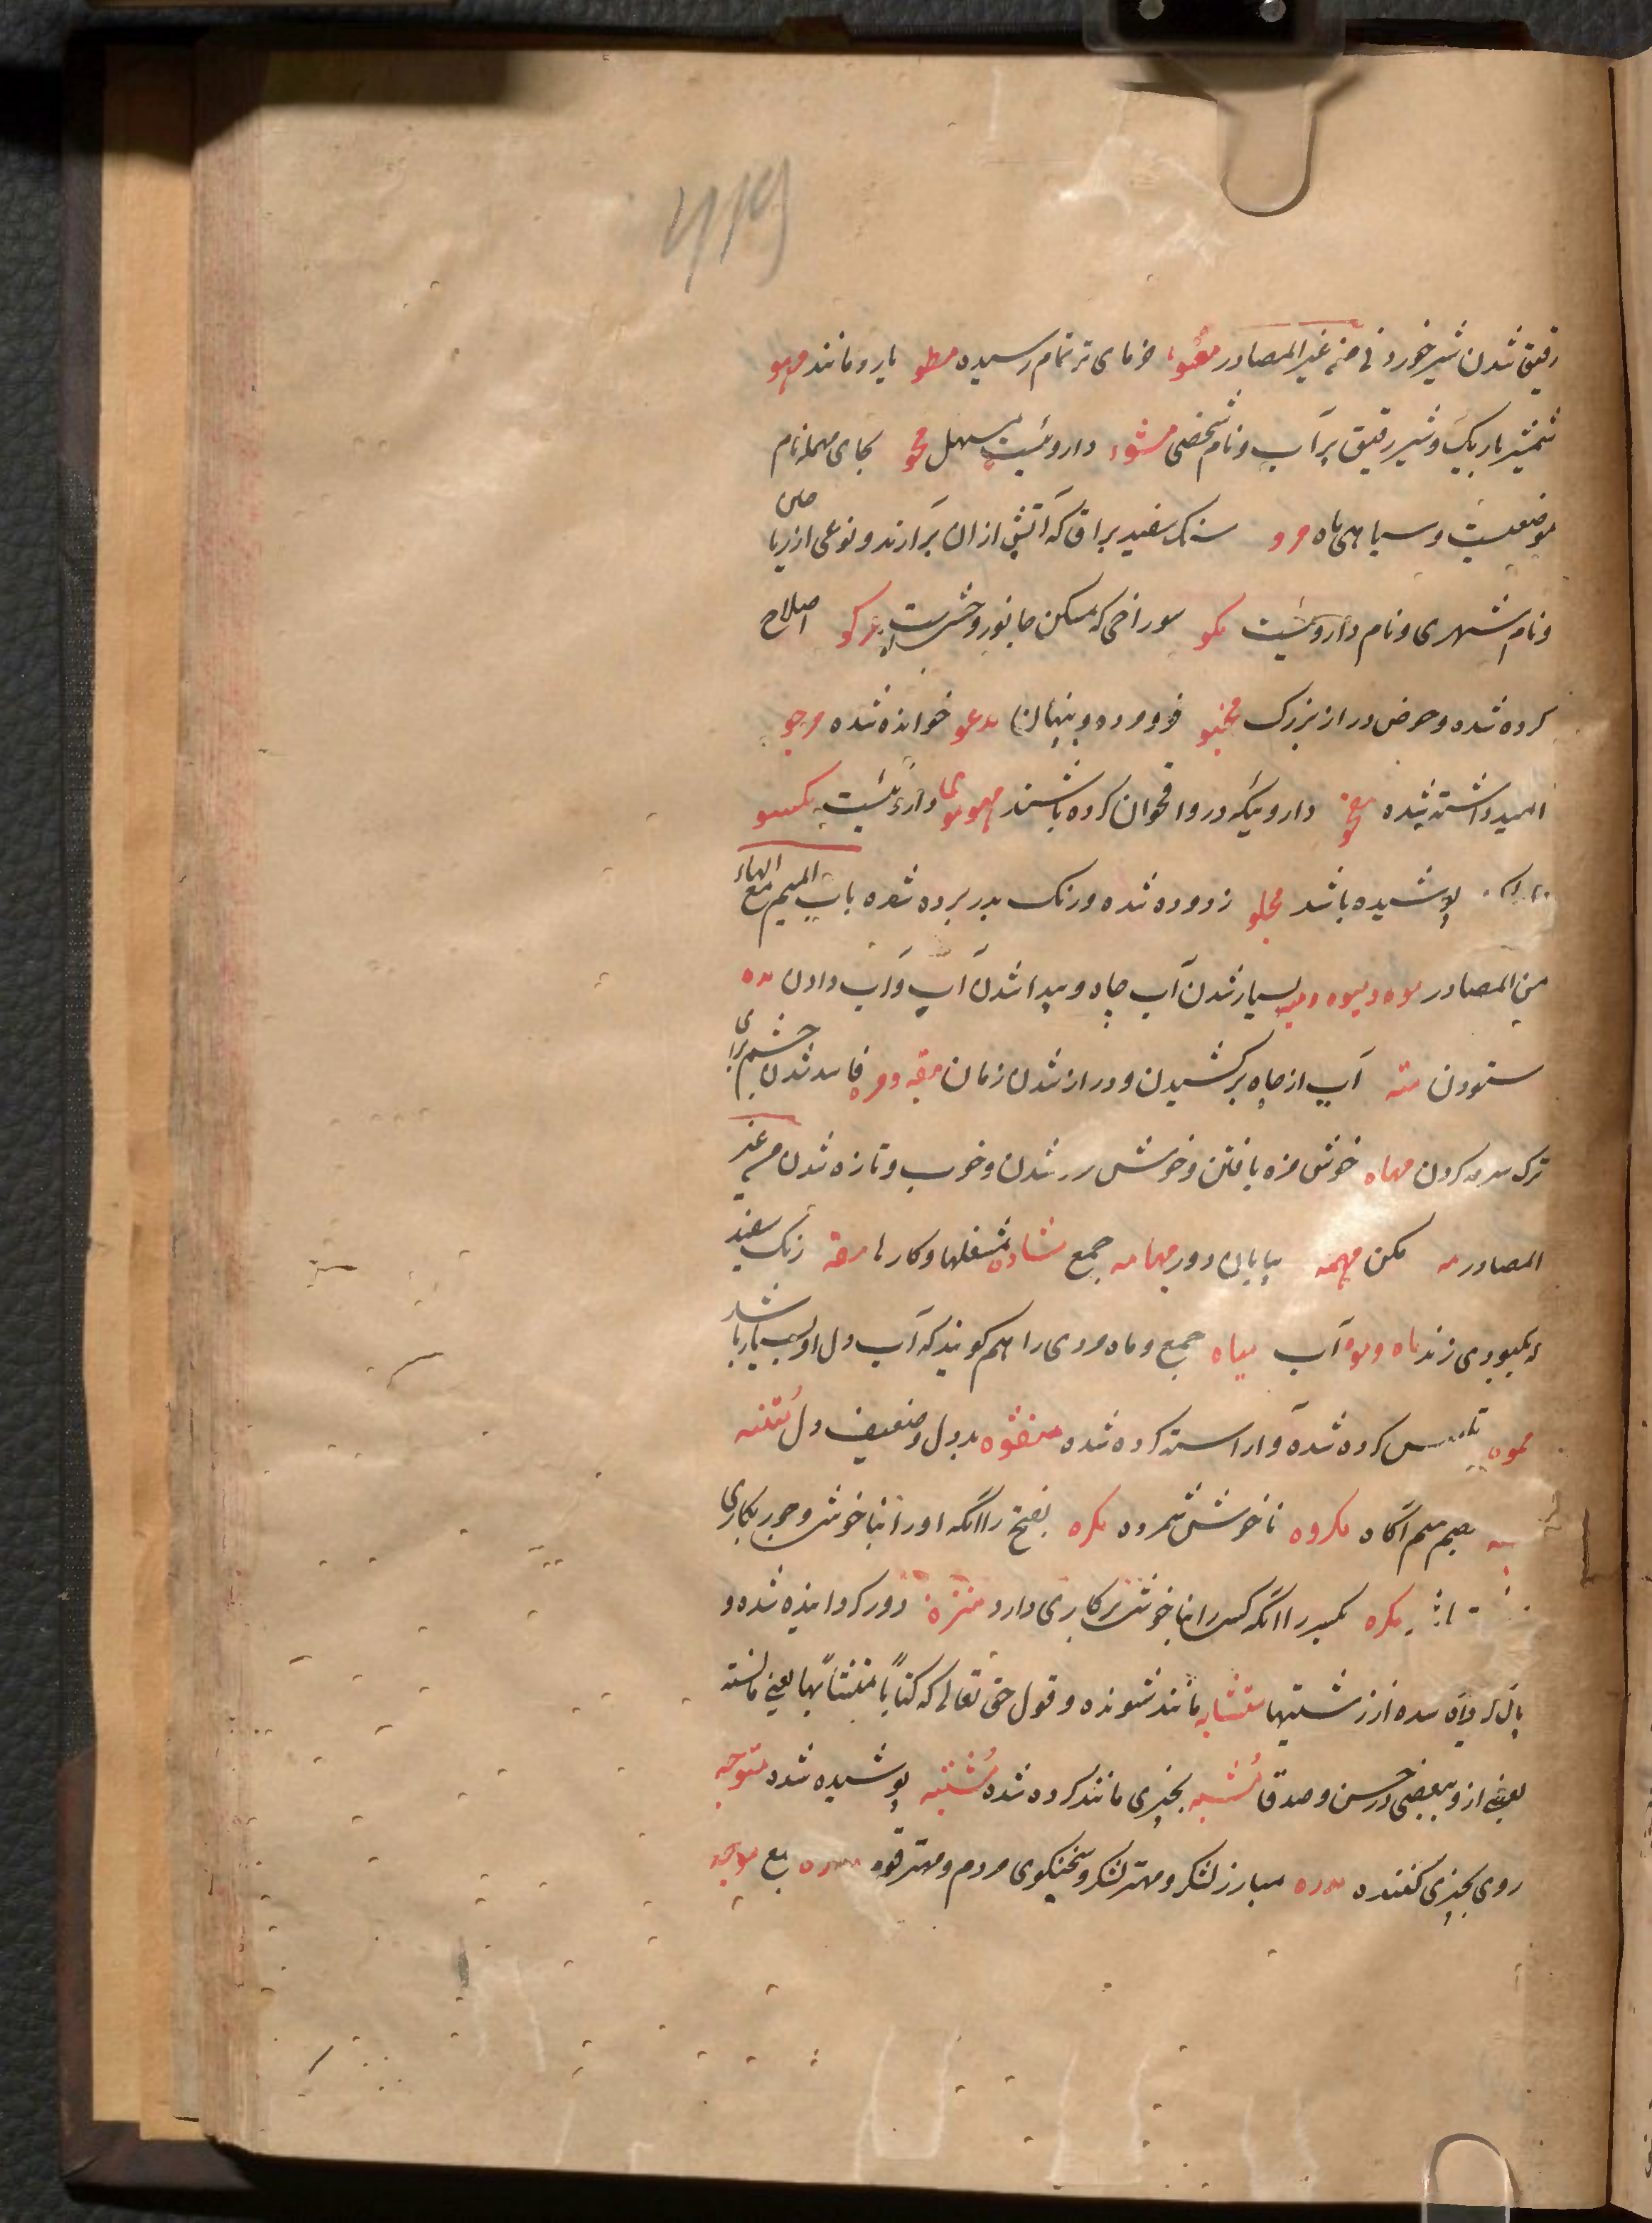 رقیق شدن شیر خورد نی من غیر المصادر معو خرمای تر تمام رسیده مطو یار و مانند مهو
شمشیر باریک و شیر رقیق پر آب و نام شخصی مشو داروئیست مسهل محو بجای مهمله نام
موضعیست و سیاهی ماه مرو سنک سفید براق که آتش ازان برآرند و نوعی از ریاحین
و نام شهری و نام داروئیست مکو سوراخی که مسکن جانور وحشیست مرکو اصلاح
کرده شده و حوض دراز بزرک مخبو فرو مرده و پنهان مدعو خوانده شده مرجو
امید داشته شده داروئیکه در وافحوان کرده باشند داروئیست مکسو
پوشیده باشد مجلو زدوده شده و زنک بدر برده شده باب المیم مع الهاء
من المصادر موه و میوه و میه بسیار شدن آب چاه و پیدا شدن آب و آب دادن مده
ستودن مته آب از چاه برکشیدن و دراز شدن زمان مقه و مره فاسد شدن چشم برای
ترک سرمه کردن مهاه خوش مزه یافتن و خوش شدن و خوب و تازه شدن من غیر
المصادر مه مکن مهمه بیابان دور مهامه جمع مشاده شغلها و کارها مقه رنک سفید
که بکبودی زند ماه و موه آب میاه جمع و ماه مردی را هم کویند که آب دل او بسیار باشد
مموه تلبیس کرده شده و آراسته کرده شده منفوه بد دل و ضعیف دل متنبه
بضم میم آکاه مکروه ناخوش شمرده مکره بفتح را آنکه او را بناخوش و جور بکاری
مکره بکسر را آنکه کسی را بناخوش بر کاری دارد منزه دور کردانیده شده و
پاک کردانیده شده از زشتیها متشابه مانند شونده و قول حق تعالی که کتابا متشابها یعنی مانسته
بعضی ازو ببعضی در حسن و صدقا مشبه بچیزی مانند کرده شده مشتبه پوشیده شده متوجه
روی بچیزی کننده مدره مبارز لشکر و مهتر لشکر و سخنکوی مردم و مهتر قوم